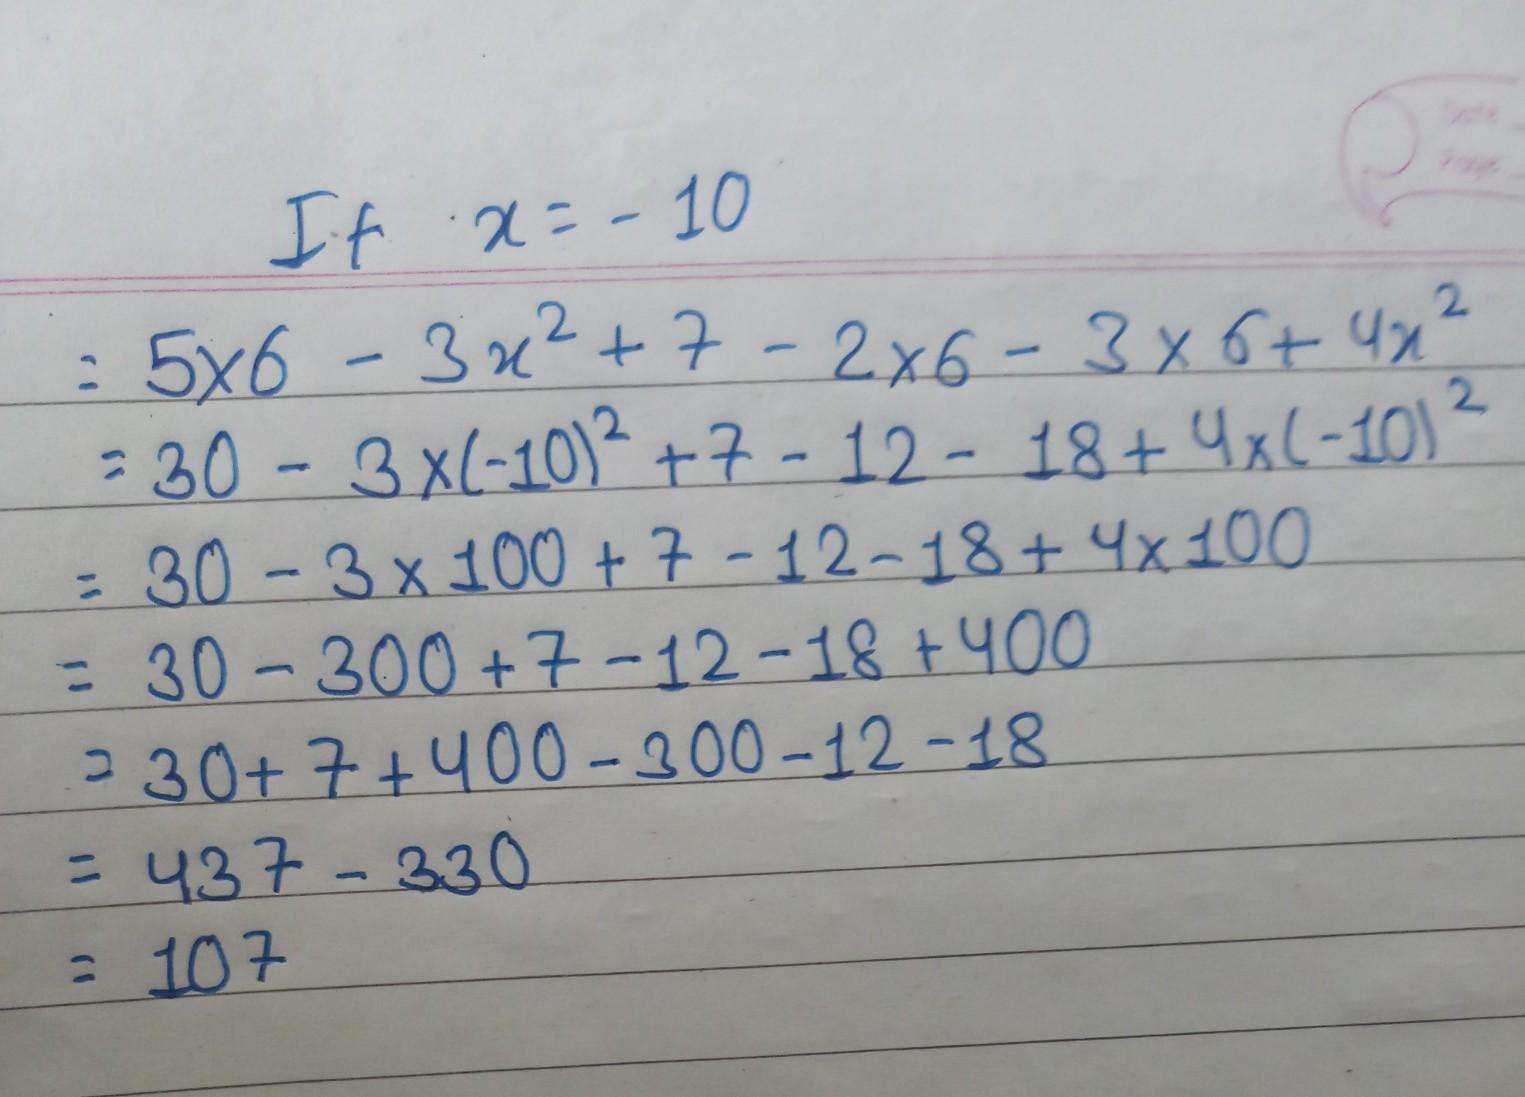 If x = - 10
= 5x6 - 3x² + 7 - 2x6 - 3 x 6 + 4x²
= 30 - 3x(-10)² + 7 - 12 - 18 + 4x(-10)²
= 30 - 3 x 100 + 7 - 12 - 18 + 4x100
= 30 - 300 + 7 - 12 - 18 + 400
= 30 + 7 + 400 - 300 - 12 - 18
= 437 - 330
= 107